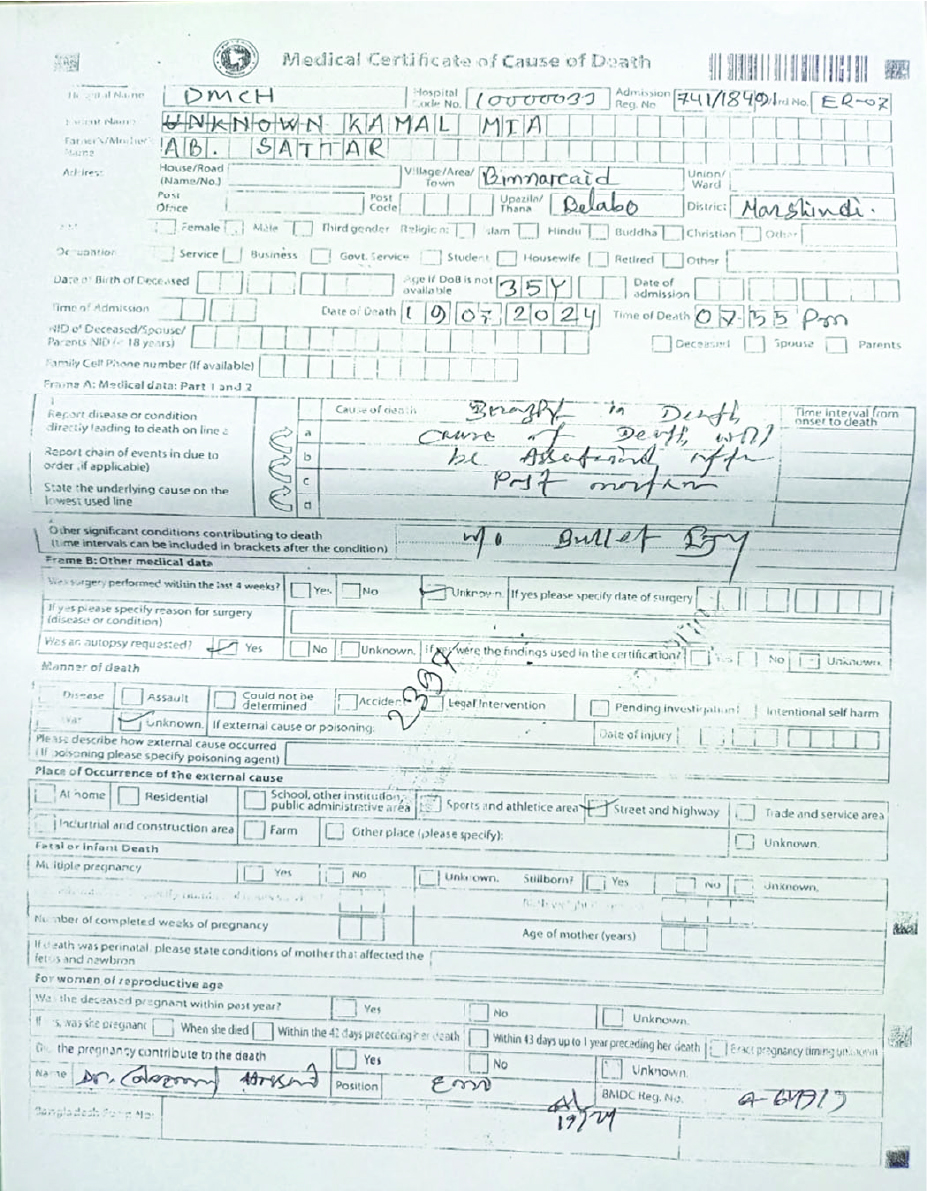 Medical Certificate of Cause of Death
Hospital Name DMCH Hospital Code No. Admission Reg. No ER-07
UNKNOWN KAMAL MIA
Father's/Mother's Name AB. SATTAR
Address House/Road (Name/No.) Village/Area/Town Binnarcaid Union/Ward
Post Office Post Code Upazila/Thana Belabo District: Marshindi.
Female Male Third gender Religion: Islam Hindu Buddha Christian Other
Occupation Service Business Govt. Service Student Housewife Retired Other
Date of Birth of Deceased Age if DoB is not available 35Y Date of admission
Time of Admission Date of Death 19 07 2024 Time of Death 07 55 Pm
NID of Deceased/Spouse/
Parents NID (< 18 years) Deceased Spouse Parents
Family Cell Phone number (If available)
Frame A: Medical data: Part 1 and 2
Report disease or condition directly leading to death on line a
Cause of death
Brought in Death,
Time interval from onset to death
a cause of Death will
Report chain of events in due to order (if applicable)
b be after
c Post mortem
State the underlying cause on the lowest used line
d
Other significant conditions contributing to death
(time intervals can be included in brackets after the condition) Bullet
Frame B: Other medical data
Was surgery performed within the last 4 weeks? Yes No Unknown. If yes please specify date of surgery
If yes please specify reason for surgery
(disease or condition)
Was an autopsy requested? Yes No Unknown. If yes were the findings used in the certification? Yes No Unknown.
Manner of death
Disease Assault Could not be determined Accident Legal Intervention Pending investigation Intentional self harm
War Unknown. If external cause or poisoning: Date of injury
Please describe how external cause occurred
(If poisoning please specify poisoning agent)
Place of Occurrence of the external cause
At home Residential School, other institution, public administrative area Sports and athletice area Street and highway Trade and service area
Indurtrial and construction area Farm Other place (please specify): Unknown.
Fetal or Infant Death
Multiple pregnancy Yes No Unknown. Stillborn? Yes No Unknown.
Number of completed weeks of pregnancy Age of mother (years)
If death was perinatal, please state conditions of mother that affected the
fetus and newbron
For women of reproductive age
Was the deceased pregnant within past year? Yes No Unknown.
If yes, was she pregnant When she died Within the 42 days preceeding her death Within 43 days up to 1 year preceding her death Exact pregnancy timing unknown
Did the pregnancy contribute to the death Yes No Unknown.
Name Dr. Position EMO BMDC Reg. No.